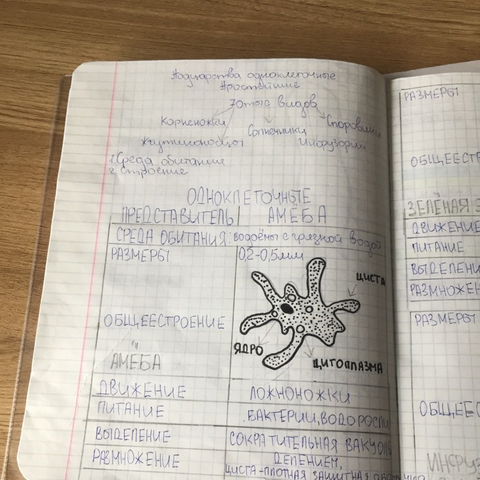 Подцарства одноклеточные
Простейшие
70 тыс видов
Корненожки Солнечники Споровики
Жгутиконосцы Инфузории
1. Среда обитания
2. Строение
ОДНОКЛЕТОЧНЫЕ
ПРЕДСТАВИТЕЛЬ АМЕБА
СРЕДА ОБИТАНИЯ: водоёмы с грязной водой
РАЗМЕРЫ 0,2-0,5мм
ЦИСТА
ОБЩЕЕ СТРОЕНИЕ
ЯДРО
ЦИТОПЛАЗМА
АМЕБА
ДВИЖЕНИЕ ЛОЖНОНОЖКИ
ПИТАНИЕ БАКТЕРИИ, ВОДОРОСЛИ
ВЫДЕЛЕНИЕ СОКРАТИТЕЛЬНАЯ ВАКУОЛЬ
РАЗМНОЖЕНИЕ ДЕЛЕНИЕМ,
ЦИСТА-ПЛОТНАЯ ЗАЩИТНАЯ
РАЗМЕРЫ
ОБЩЕЕ СТ
ЗЕЛЁНАЯ Э
ДВИЖЕНИЕ
ПИТАНИЕ
ВЫДЕЛЕНИЕ
РАЗМНОЖЕН
РАЗМЕРЫ
ОБЩЕЕ С
ИНФУЗ